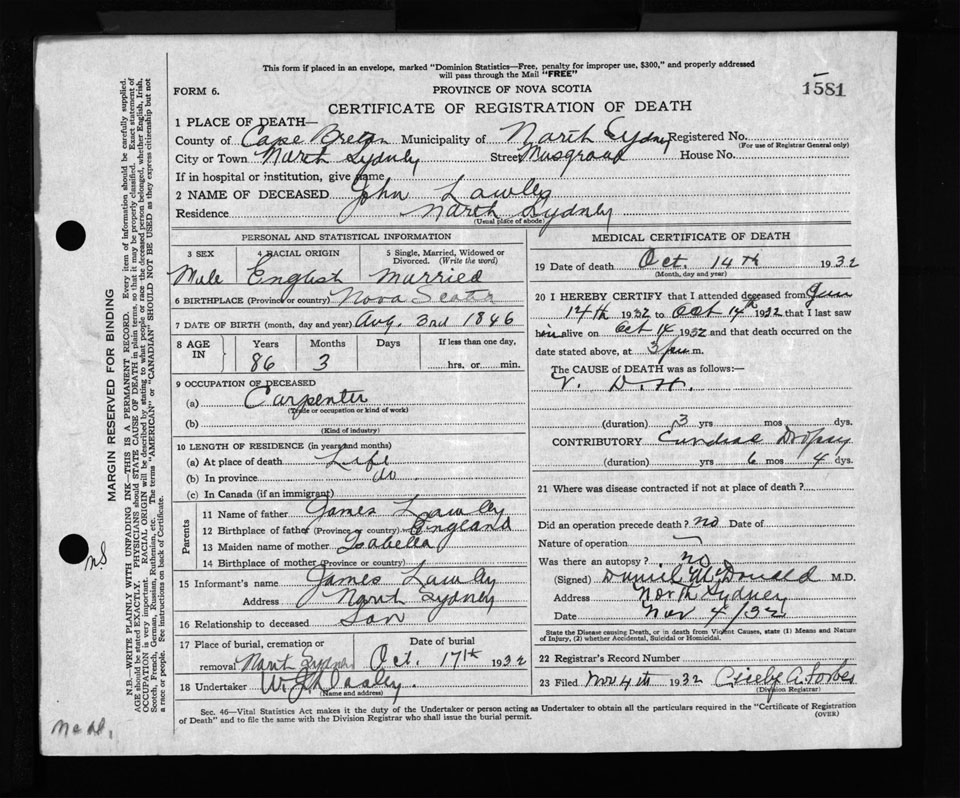 This form if placed in an envelope, marked "Dominion Statistics—Free, penalty for improper use, $300," and properly addressed
will pass through the Mail "FREE"
FORM 6.
PROVINCE OF NOVA SCOTIA
1581
CERTIFICATE OF REGISTRATION OF DEATH
1 PLACE OF DEATH—
County of Cape Breton Municipality of North Sydney Registered No.
(For use of Registrar General only)
City or Town North Sydney Street Musgrave House No.
If in hospital or institution, give name
2 NAME OF DECEASED John Lawley
Residence North Sydney
(Usual place of abode)
PERSONAL AND STATISTICAL INFORMATION
3 SEX 4 RACIAL ORIGIN 5 Single, Married, Widowed or Divorced. (Write the word)
Male English Married
6 BIRTHPLACE (Province or country) Nova Scotia
7 DATE OF BIRTH (month, day and year) Aug. 3rd 1846
8 AGE IN Years Months Days If less than one day,
86 3 hrs. or min.
9 OCCUPATION OF DECEASED
(a) Carpenter
(Trade or occupation or kind of work)
(b)
(Kind of industry)
10 LENGTH OF RESIDENCE (in years and months)
(a) At place of death Life
(b) In province do
(c) In Canada (if an immigrant)
Parents
11 Name of father James Lawley
12 Birthplace of father (Province or country) England
13 Maiden name of mother Isabella
14 Birthplace of mother (Province or country)
15 Informant's name James Lawley
Address North Sydney
16 Relationship to deceased Son
17 Place of burial, cremation or removal North Sydney Date of burial Oct. 17th 1932
18 Undertaker W.J. Dooley
(Name and address)
MEDICAL CERTIFICATE OF DEATH
19 Date of death Oct. 14th 1932
(Month, day and year)
20 I HEREBY CERTIFY that I attended deceased from Jun
14th 1932 to Oct 14th 1932 that I last saw
him alive on Oct 14 1932 and that death occurred on the
date stated above, at 3 pm m.
The CAUSE of DEATH was as follows:
V. D. H.
(duration) 3 yrs mos dys.
CONTRIBUTORY Cardiac Dropsy
(duration) yrs 6 mos 4 dys.
21 Where was disease contracted if not at place of death?
Did an operation precede death? no Date of
Nature of operation
Was there an autopsy? no
(Signed) Daniel McDonald M.D.
Address North Sydney
Date Nov 4/32
State the Disease causing Death, or in death from Violent Causes, state (1) Means and Nature
of Injury, (2) whether Accidental, Suicidal or Homicidal.
22 Registrar's Record Number
23 Filed Nov 4th 1932 Cicely A. Forbes
(Division Registrar)
Sec. 46—Vital Statistics Act makes it the duty of the Undertaker or person acting as Undertaker to obtain all the particulars required in the "Certificate of Registration
of Death" and to file the same with the Division Registrar who shall issue the burial permit.
(OVER)
MARGIN RESERVED FOR BINDING
N.B.—WRITE PLAINLY WITH UNFADING INK—THIS IS A PERMANENT RECORD. Every item of information should be carefully supplied.
AGE should be stated EXACTLY. PHYSICIANS should STATE CAUSE OF DEATH in plain terms, so that it may be properly classified. Exact statement of
OCCUPATION is very important. RACIAL ORIGIN will be described by stating to what people or race the deceased person belonged, whether English, Irish,
Scotch, French, German, Russian, Ruthenian, etc. The terms "AMERICAN" or "CANADIAN" SHOULD NOT BE USED as they express citizenship but not
a race or people. See instructions on back of Certificate.
nS